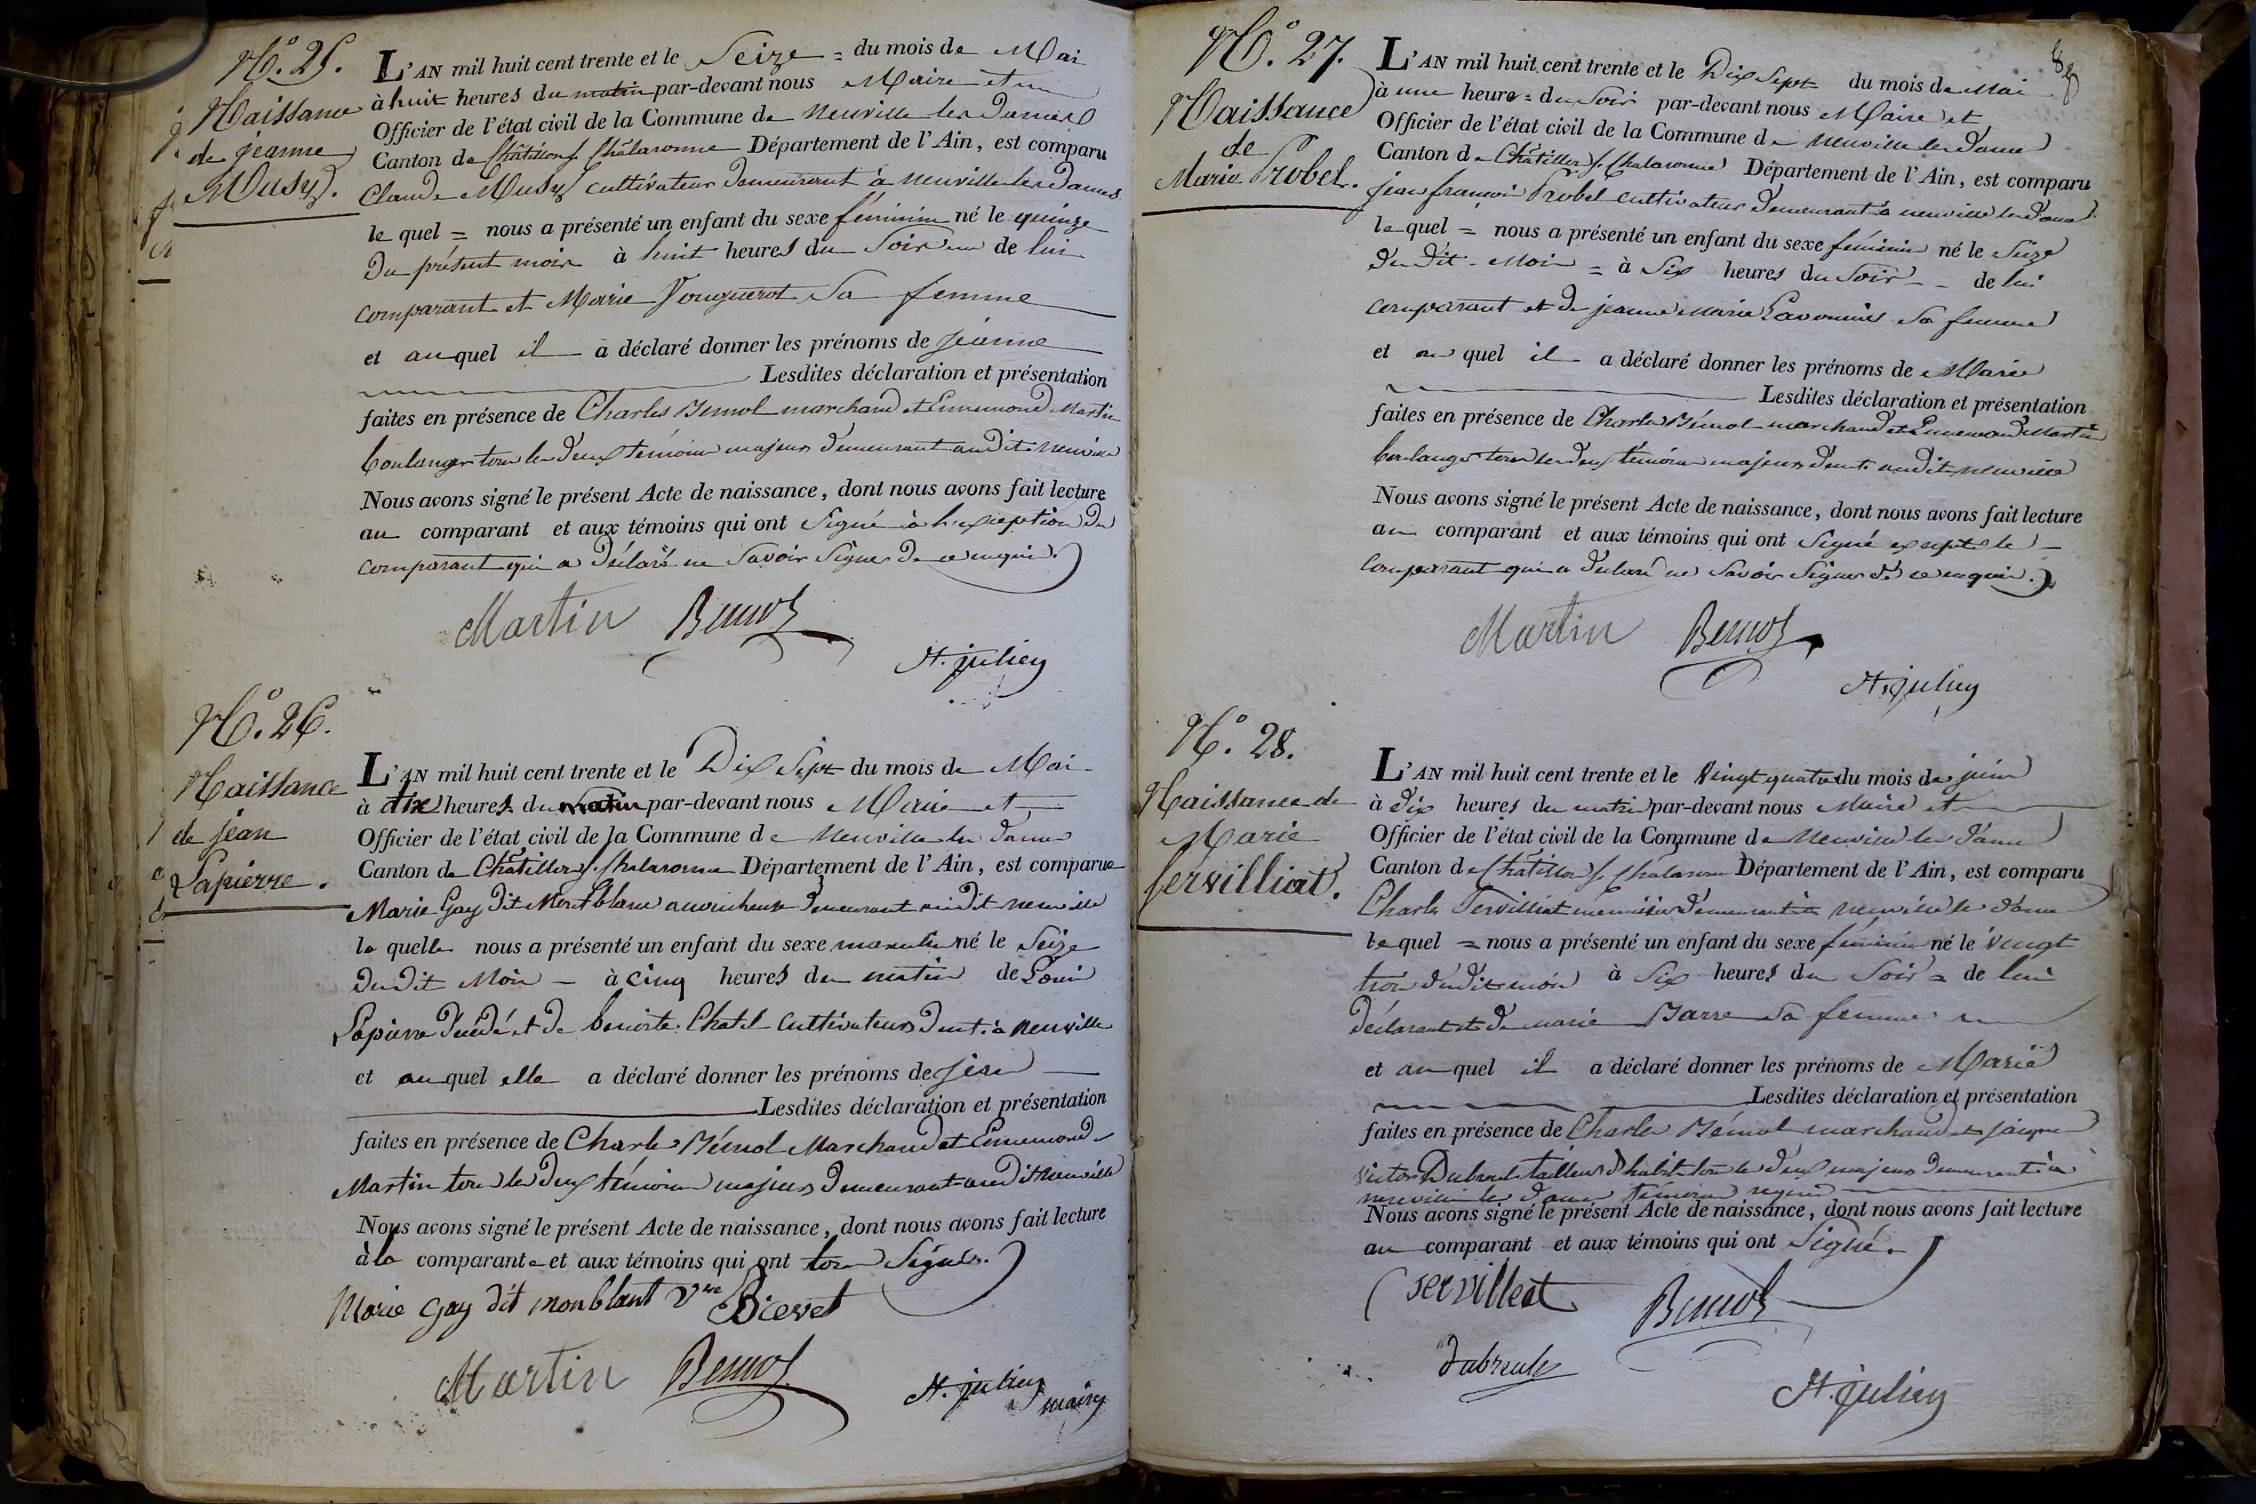 N.º 25.
Naissance
de jeanne
Musy.
L'AN mil huit cent trente et le Seize = du mois de Mai
à huit heures du matin par-devant nous Maire et
Officier de l'état civil de la Commune de Neuville les Dames
Canton de Châtillon s. Chalaronne Département de l'Ain, est comparu
Claude Musy cultivateur demeurant à neuville les Dames
le quel = nous a présenté un enfant du sexe féminin né le quinze
du présent mois à huit heures du Soir de lui
comparant et Marie Vouguerot Sa femme
et au quel il a déclaré donner les prénoms de jeanne
Lesdites déclaration et présentation
faites en présence de Charles Bernol marchand et Ennemond Martin
boulanger tous les deux témoins majeurs demeurant audit neuville
Nous avons signé le présent Acte de naissance, dont nous avons fait lecture
au comparant et aux témoins qui ont Signé à l'exception du
comparant qui a déclaré ne Savoir Signer de ce enquis.
Martin Bernol
St. julien
N.º 26.
Naissance
de jean
Lapierre.
L'AN mil huit cent trente et le Dix Sept du mois de Mai
à dix heures du matin par-devant nous Maire et
Officier de l'état civil de la Commune de Neuville les dames
Canton de Châtillon s. Chalaronne Département de l'Ain, est comparue
Marie Gay dit Montblanc accoucheuse demeurant audit neuville
la quelle nous a présenté un enfant du sexe masculin né le Seize
dudit Mois - à cinq heures du matin de Louis
Lapierre décédé et de benoite Chatel cultivateurs demt. à neuville
et au quel elle a déclaré donner les prénoms de jean
Lesdites déclaration et présentation
faites en présence de Charles Bémol Marchand et Ennemond
Martin tous les deux témoins majeurs demeurant audit neuville
Nous avons signé le présent Acte de naissance, dont nous avons fait lecture
à la comparante et aux témoins qui ont tous Signés.
Marie gay dit monblant Vve Bievet
Martin Bernol
St. julien
maire
88
N.º 27.
Naissance
de
Marie Probel.
L'AN mil huit cent trente et le Dix Sept du mois de Mai
à une heure = du Soir par-devant nous Maire et
Officier de l'état civil de la Commune de Neuville les dames
Canton de Châtillon s. Chalaronne Département de l'Ain, est comparu
jean françois Probel cultivateur demeurant à neuville les dames
le quel = nous a présenté un enfant du sexe féminin né le Seize
dudit Mois = à Six heures du Soir - de lui
comparant et de jeanne Marie Sa femme
et au quel il a déclaré donner les prénoms de Marie
Lesdites déclaration et présentation
faites en présence de Charles Bémol marchand et Ennemond Martin
boulanger tous les deux témoins majeurs demt. audit neuville
Nous avons signé le présent Acte de naissance, dont nous avons fait lecture
au comparant et aux témoins qui ont Signé excepté le
comparant qui a déclaré ne Savoir Signer de ce enquis.
Martin Bernol
St. julien
N.º 28.
Naissance de
Marie
Servilliat.
L'AN mil huit cent trente et le Vingt quatre du mois de juin
à dix heures du matin par-devant nous Maire et
Officier de l'état civil de la Commune de Neuville les dames
Canton de Châtillon s. Chalaronne Département de l'Ain, est comparu
Charles Servilliat menuisier demeurant à neuville les dames
le quel = nous a présenté un enfant du sexe féminin né le vingt
trois dudit mois à Six heures du Soir = de lui
déclarant et de marie Barre Sa femme
et au quel il a déclaré donner les prénoms de Marie
Lesdites déclaration et présentation
faites en présence de Charles Bémol marchand et jacques
victor Dubreul tailleur d'habit tous les deux majeurs demeurant à
neuville les dames témoins requis
Nous avons signé le présent Acte de naissance, dont nous avons fait lecture
au comparant et aux témoins qui ont Signé.
servilleat Bernol
dubreul
St. julien